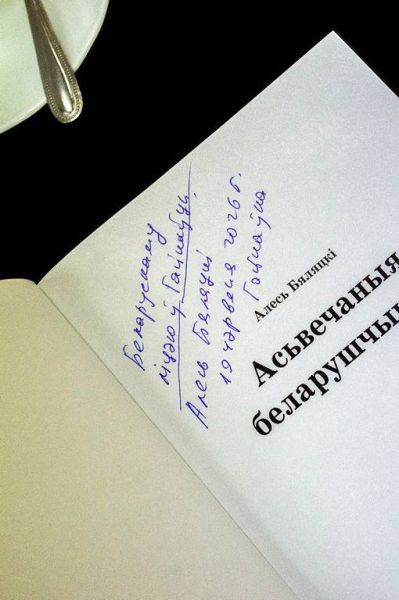 Беларускаму
музэю ў Гайнаўцы,
Алесь Бяляцкі
19 чэрвеня 2026 г.
Гайнаўка
Алесь Бяляцкі
Асьвечаныя
беларушчы